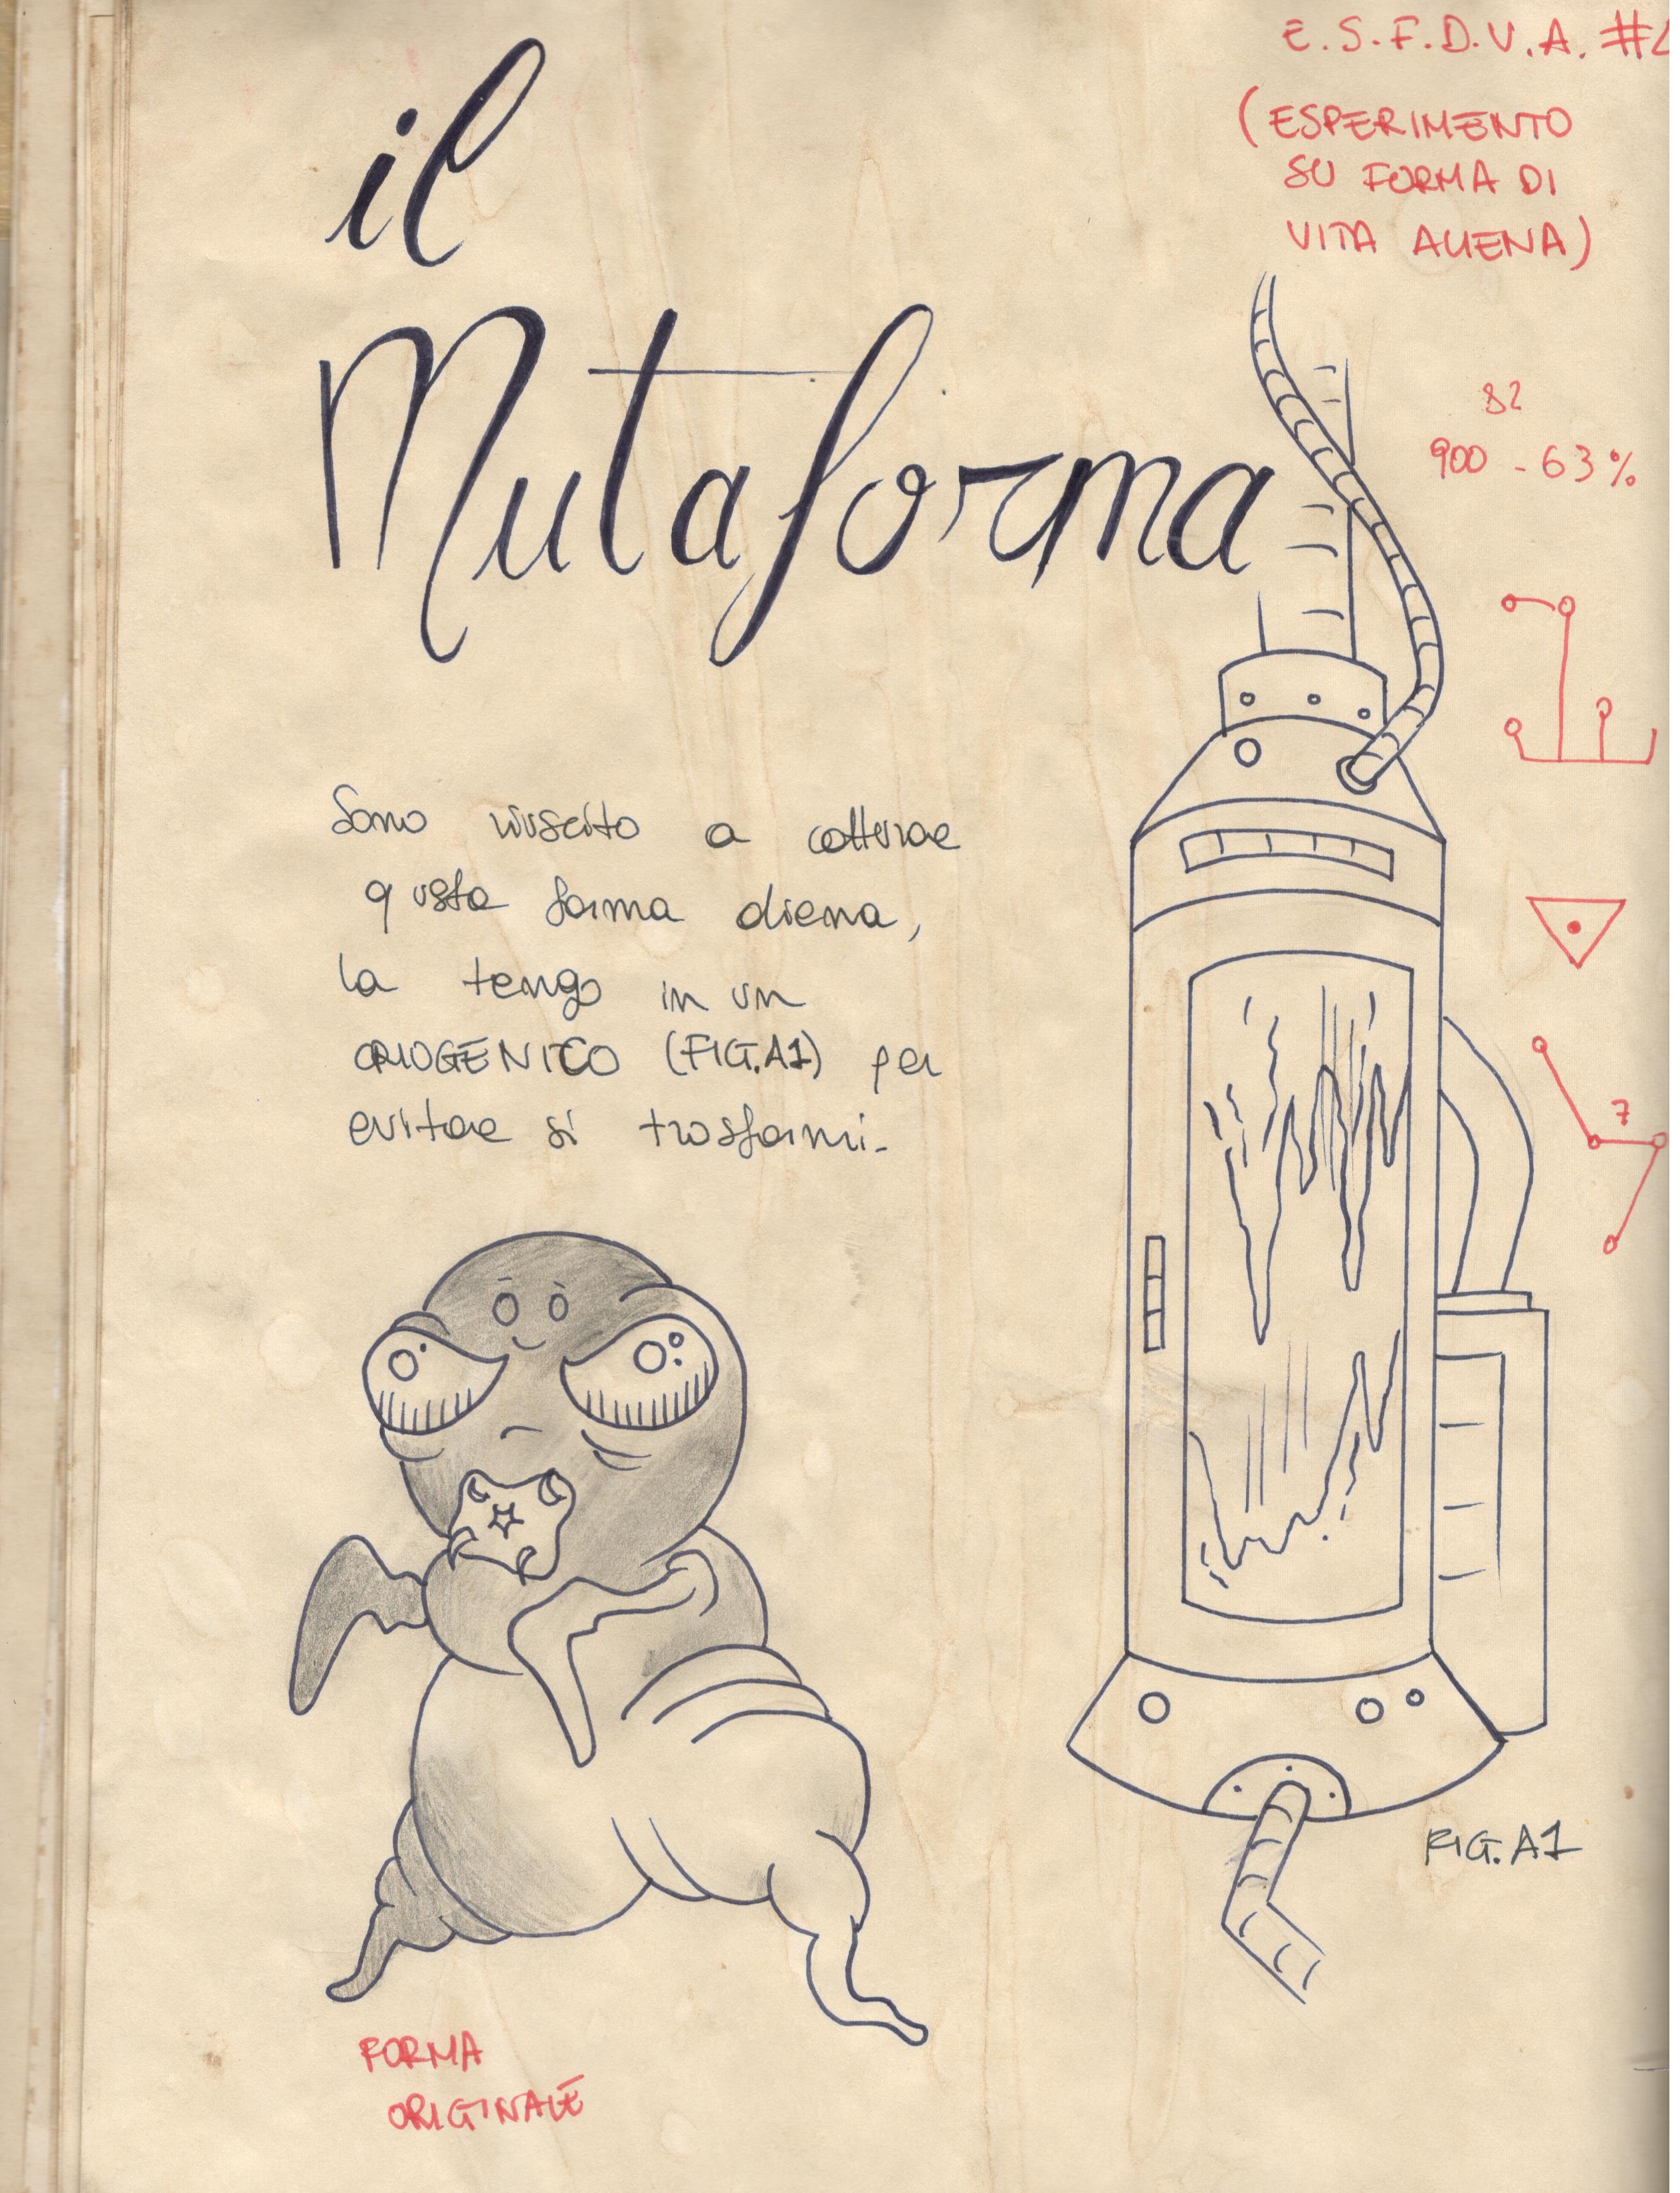 E.S.F.D.V.A. #
(ESPERIMENTO
SU FORMA DI
VITA ALIENA)
il
Mutaforma
82
900 - 63%
Sono riuscito a catturare
questa forma aliena,
la tengo in un
CRIOGENICO (FIG.A1) per
evitare si trasformi.
7
FIG.A1
FORMA
ORIGINALE